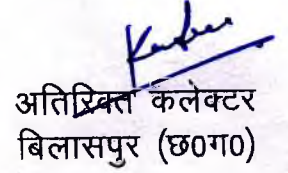 अतिरिक्त कलेक्टर
बिलासपुर (छ0ग0)